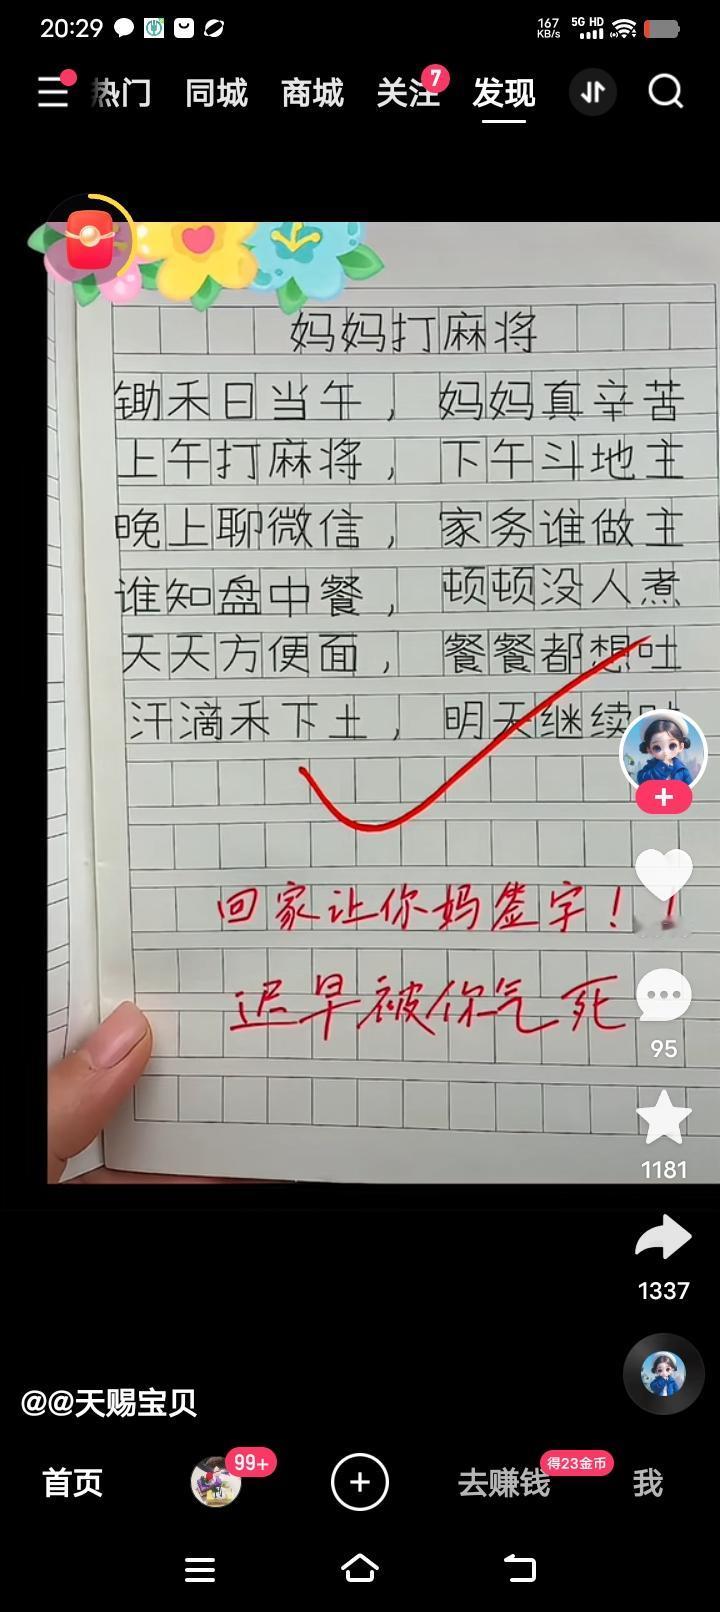 20:29
167 KB/s 5G HD
热门 同城 商城 关注 7 发现
妈妈打麻将
锄禾日当午，妈妈真辛苦
上午打麻将，下午斗地主
晚上聊微信，家务谁做主
谁知盘中餐，顿顿没人煮
天天方便面，餐餐都想吐
汗滴禾下土，明天继续
回家让你妈签字！！
迟早被你气死
95
1181
1337
@@天赐宝贝
首页 99+ 去赚钱 得23金币 我